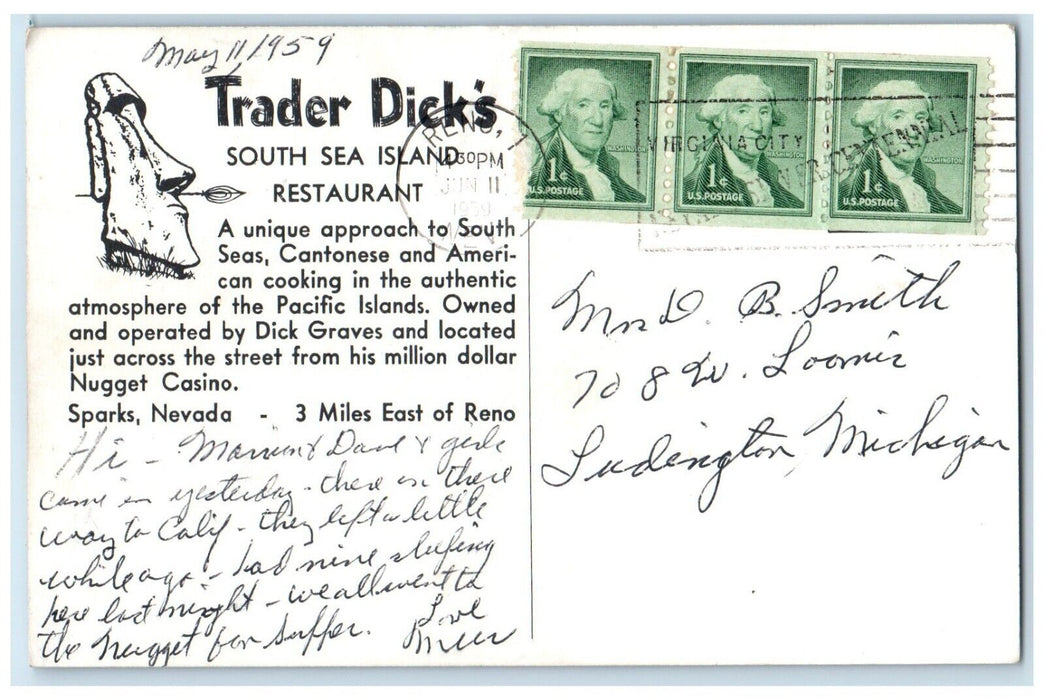 May 11, 1959
Trader Dick's
SOUTH SEA ISLAND
RESTAURANT
A unique approach to South
Seas, Cantonese and Ameri-
can cooking in the authentic
atmosphere of the Pacific Islands. Owned
and operated by Dick Graves and located
just across the street from his million dollar
Nugget Casino.
Sparks, Nevada - 3 Miles East of Reno
Hi - & Dave & girls
came in yesterday - there on there
way to Calif - they left a little
while ago - had nine sleeping
here last night - we all went to
the Nugget for supper.
Love
RENO,
30PM
JUN 11
1959
NEV
1¢
U.S. POSTAGE
WASHINGTON
1¢
U.S. POSTAGE
WASHINGTON
1¢
U.S. POSTAGE
WASHINGTON
VIRGINIA CITY
CENTENNIAL
Mrs D. B. Smith
708 W. Loomis
Ludington, Michigan